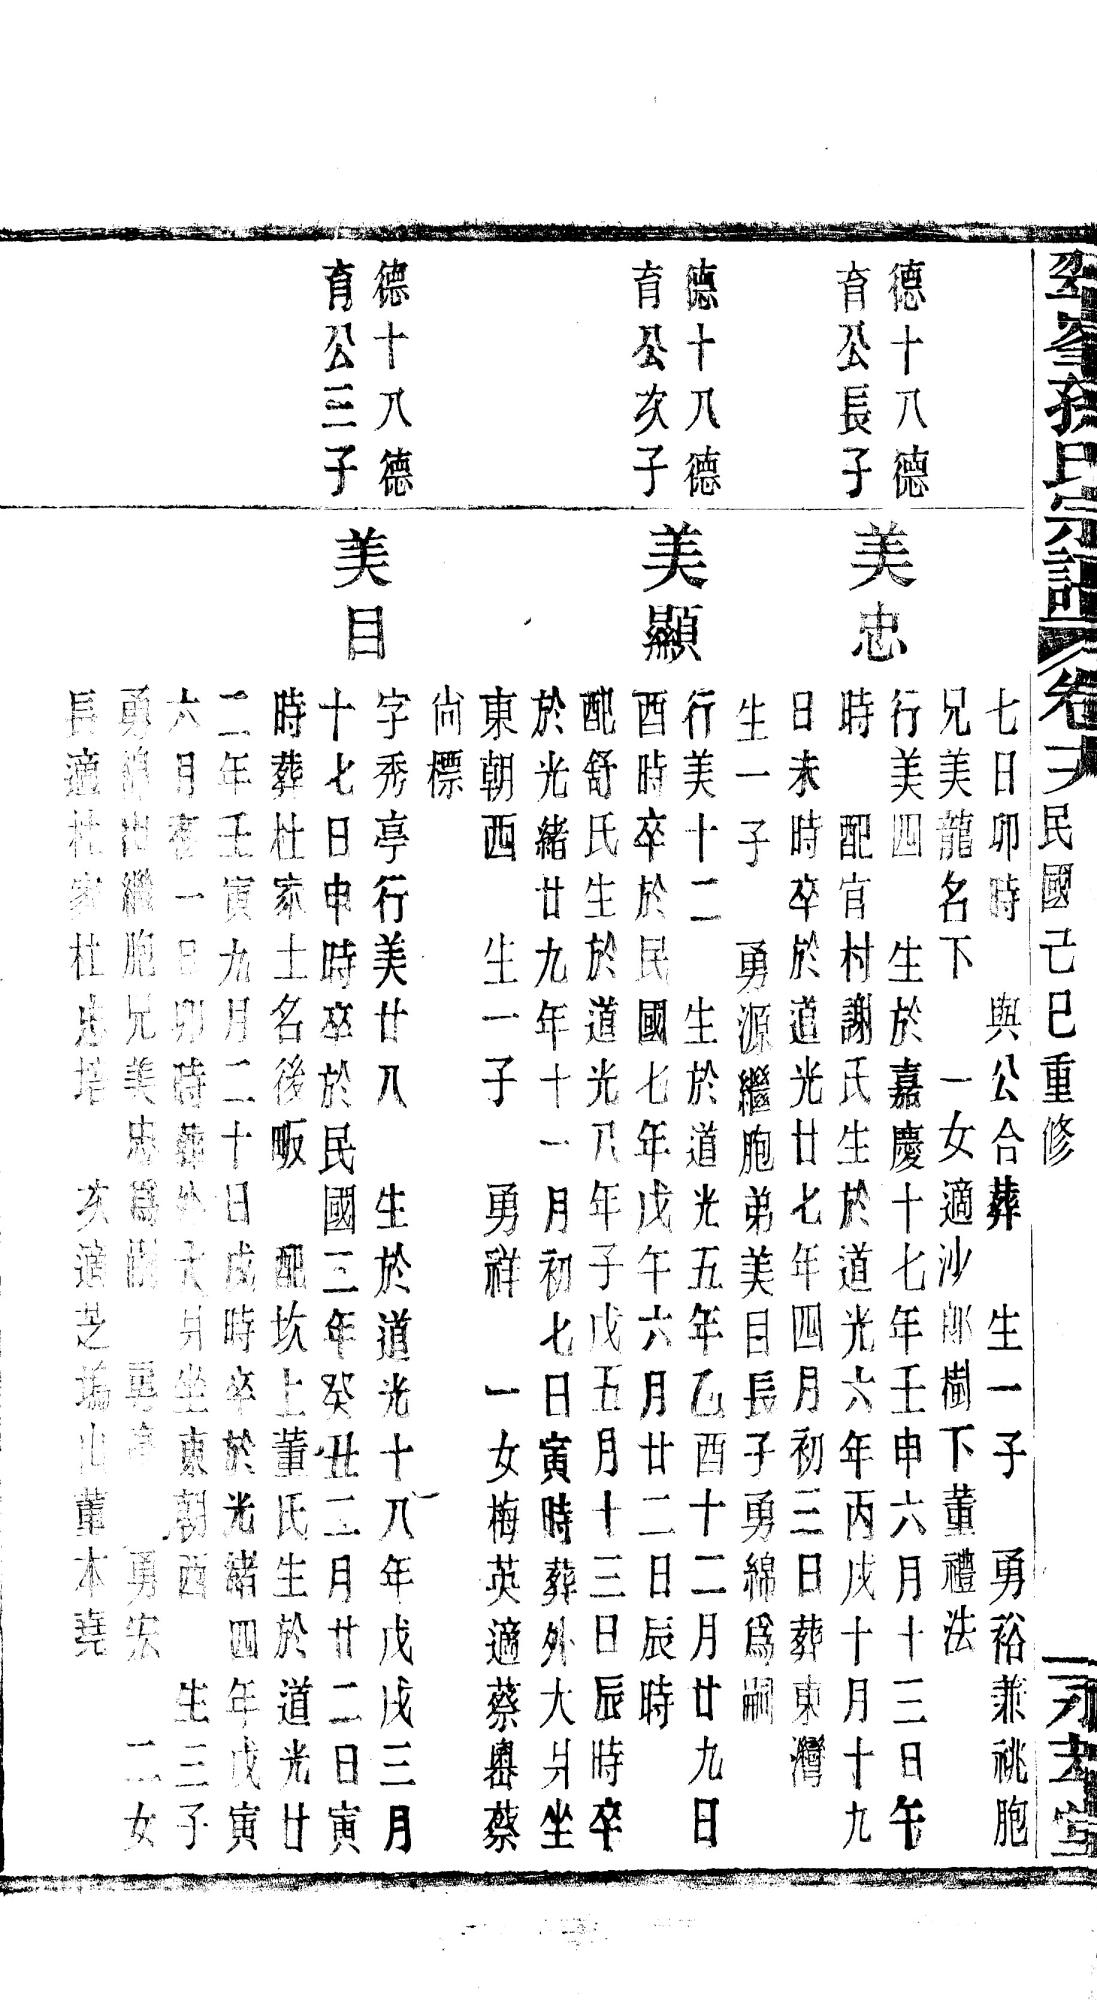 孫氏宗譜 卷 民國己巳重修 堂
七日卯時 與公合葬 生一子 勇裕兼祧胞
兄美龍名下 一女適沙郎樹下董禮法
德十八德
育公長子
美忠
行美四 生於嘉慶十七年壬申六月十三日午
時 配官村謝氏生於道光六年丙戌十月十九
日未時卒於道光廿七年四月初三日葬東灣
生一子 勇源繼胞弟美目長子勇綿爲嗣
德十八德
育公次子
美顯
行美十二 生於道光五年乙酉十二月廿九日
酉時卒於民國七年戊午六月廿二日辰時
配舒氏生於道光八年子戊五月十三日辰時卒
於光緒廿九年十一月初七日寅時葬外大爿坐
東朝西 生一子 勇祥 一女梅英適蔡嶴蔡
尚標
德十八德
育公三子
美目
字秀亭行美廿八 生於道光十八年戊戌三月
十七日申時卒於民國三年癸丑二月廿二日寅
時葬杜家土名後畈 配坎上董氏生於道光廿
二年壬寅九月二十日戌時卒於光緒四年戊寅
六月初一日卯時葬外大爿坐東朝西 生三子
勇綿出繼胞兄美忠爲嗣 勇亭 勇宏 二女
長適杜家杜忠培 次適芝塢山董本堯